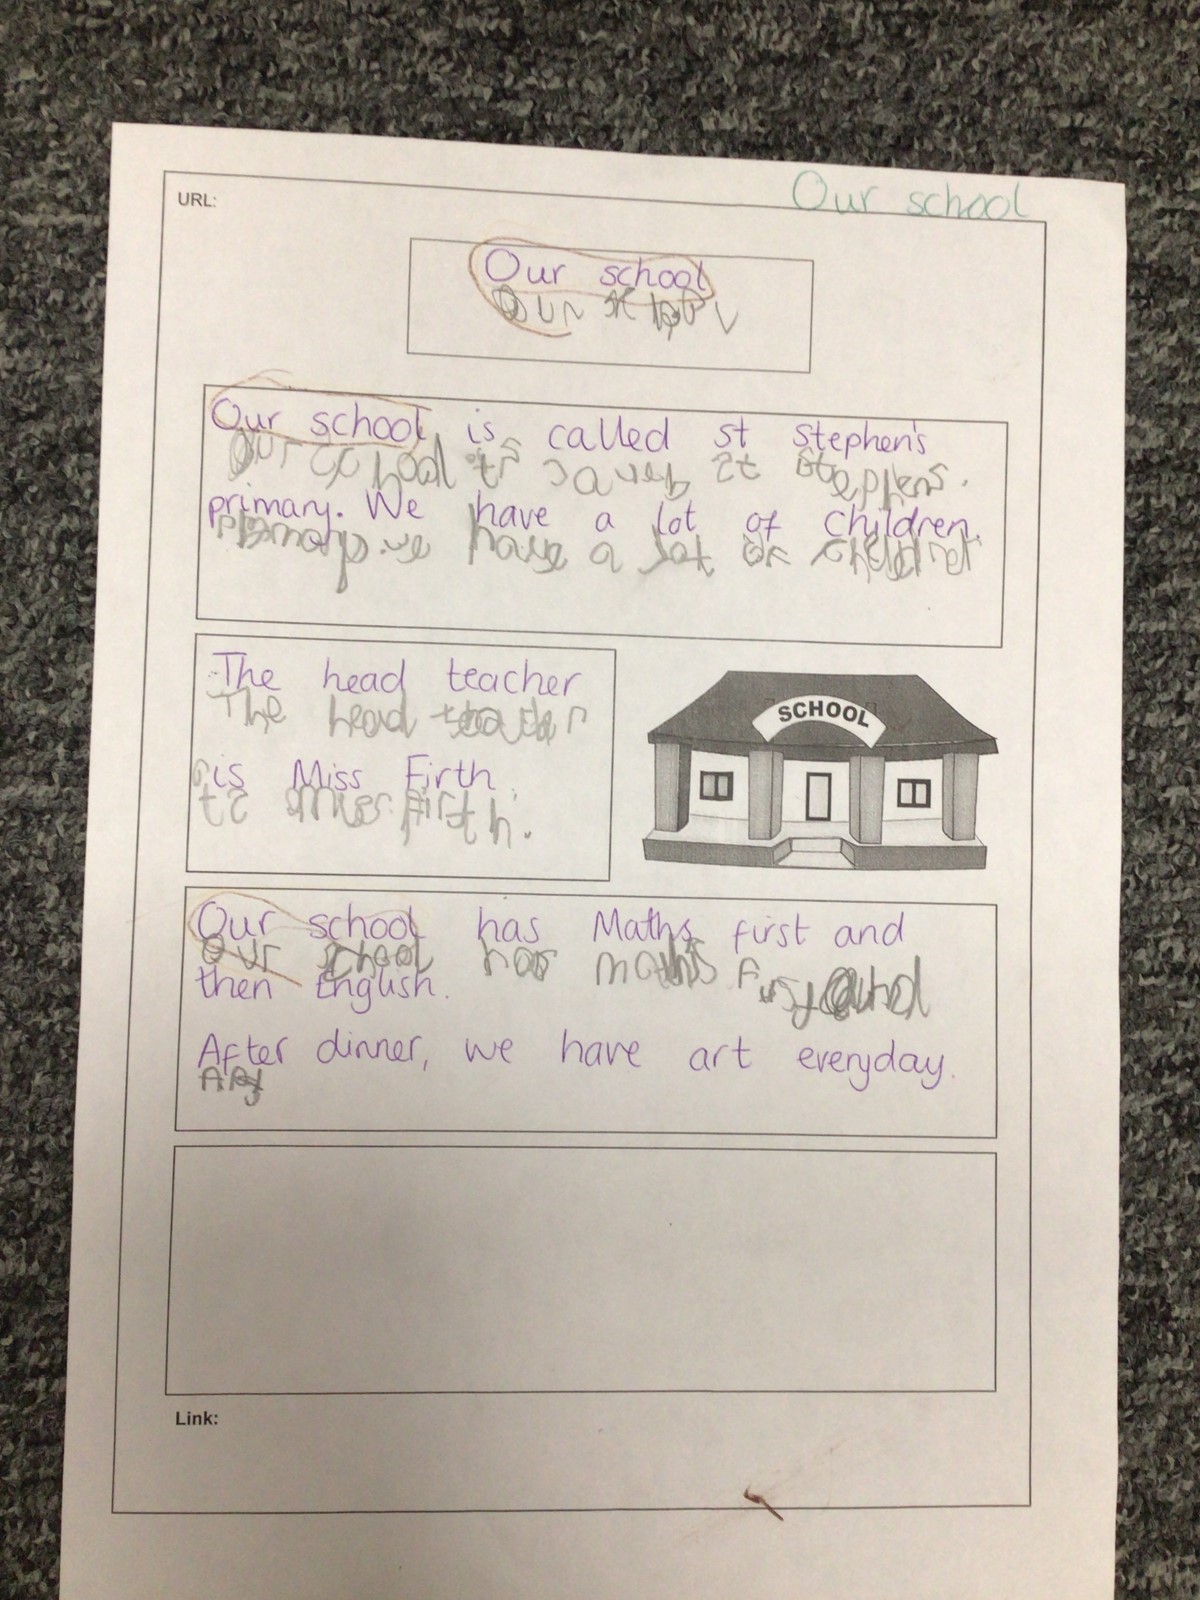 Our school
URL:
Our school
Our
Our school is called st Stephen's
Our school is st Stephens.
primary. We have a lot of children.
have a lot of
The head teacher
SCHOOL
The head teacher
is Miss Firth.
firth.
Our school has Maths first and
Our school has maths and
then English.
After dinner, we have art everyday.
Link: